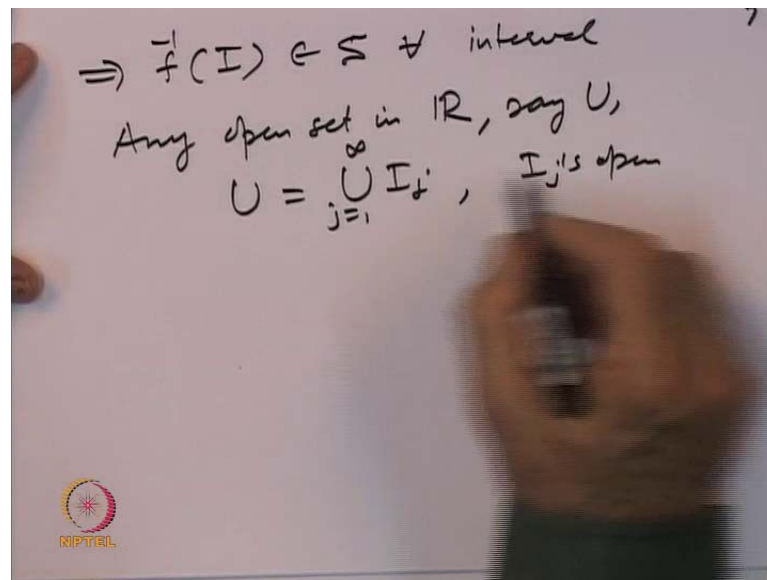 ⇒ f⁻¹(I) ∈ S ∀ interval
Any open set in ℝ, say U,
U = ⋃_{j=1}^{∞} I_j , I_j's open
NPTEL